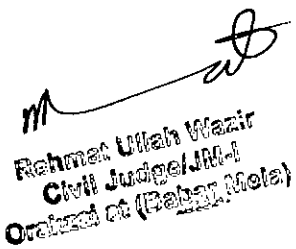 Rehmat Ullah Wazir
Civil Judge/JM-I
Orakzai at (Baber Mela)